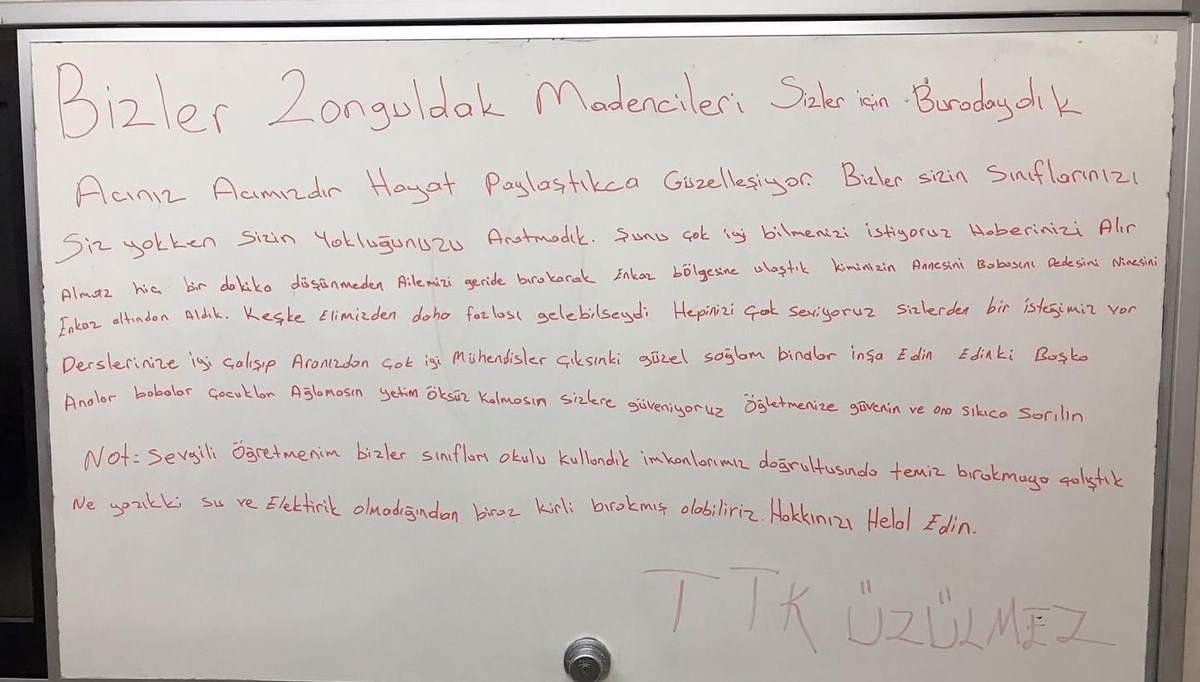 Bizler Zonguldak Madencileri Sizler için Buradaydık
Acınız Acımızdır Hayat Paylaştıkca Güzelleşiyor. Bizler sizin Sınıflarınızı
Siz yokken Sizin Yokluğunuzu Aratmadık. Şunu çok iyi bilmenizi istiyoruz Haberinizi Alır
Almaz hiç bir dakika düşünmeden Ailemizi geride bırakarak Enkaz bölgesine ulaştık kiminizin Annesini Babasını Dedesini Ninesini
Enkaz altından Aldık. Keşke Elimizden daha fazlası gelebilseydi Hepinizi çok seviyoruz sizlerden bir isteğimiz var
Derslerinize iyi çalışıp Aranızdan çok iyi Mühendisler çıksınki güzel sağlam binalar inşa Edin Edinki Başka
Analar babalar çocuklar Ağlamasın yetim öksüz kalmasın sizlere güveniyoruz Öğletmenize güvenin ve ona sıkıca Sarılın
Not: Sevgili Öğretmenim bizler sınıfları okulu kullandık imkanlarımız doğrultusunda temiz bırakmaya çalıştık
Ne yazıkki su ve Elektirik olmadığından biraz kirli bırakmış olabiliriz. Hakkınızı Helal Edin.
TTK ÜZÜLMEZ